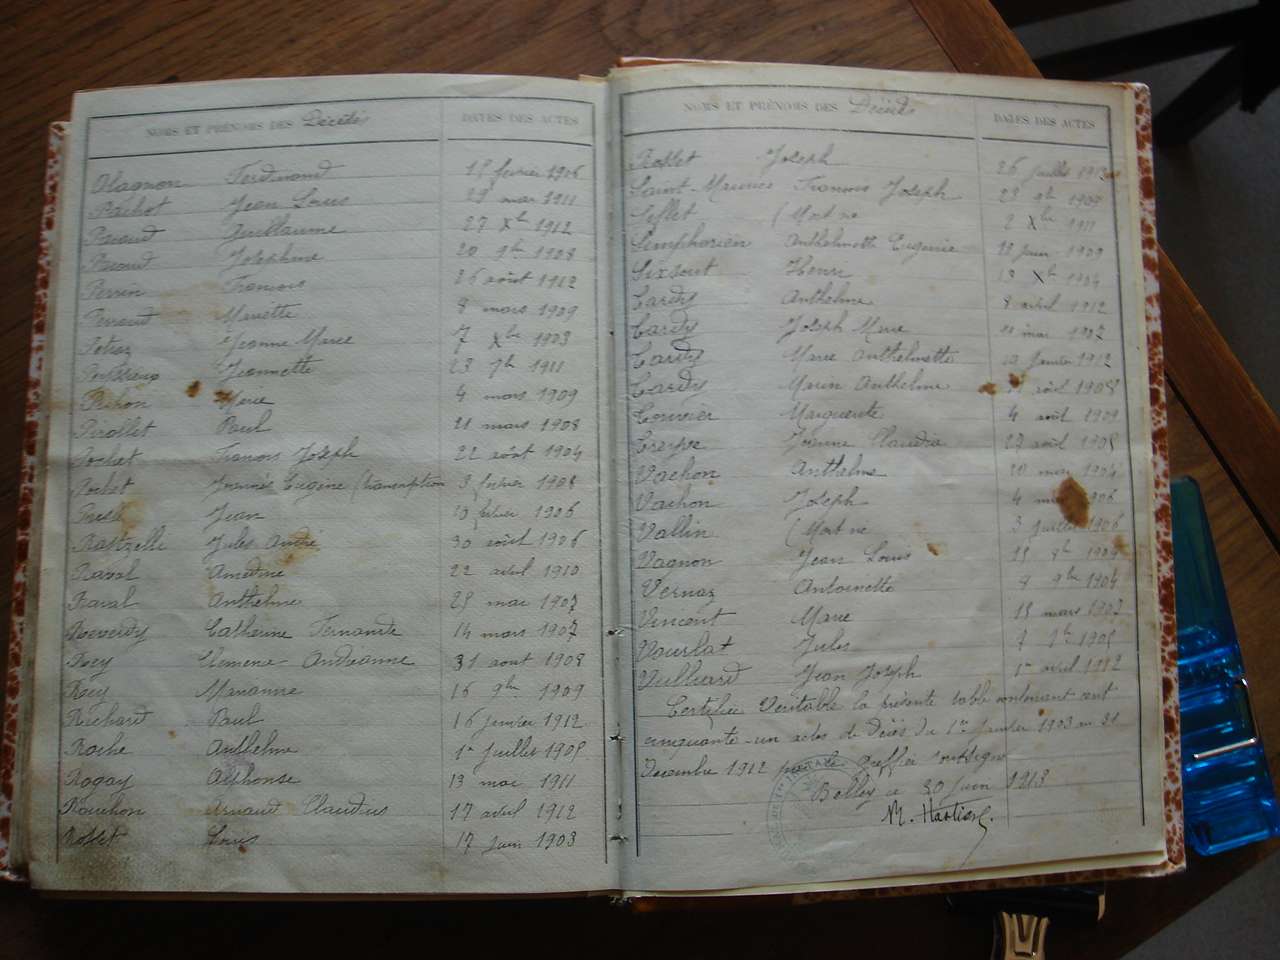 NOMS ET PRÉNOMS DES Décédés DATES DES ACTES
Olagnon Ferdinand 15 février 1906
Pachot Jean Louis 29 mai 1911
Pacoud Guillaume 27 Xbre 1912
Pacoud Joséphine 20 9bre 1908
Perrin François 26 août 1912
Perroud Mariette 8 mars 1909
Petraz Jeanne Marie 7 Xbre 1903
Jeannette 23 7bre 1911
Pichon Marie 4 mars 1909
Pirollet Paul 21 mars 1908
Pochet François Joseph 22 août 1904
Pochet Eugène (transcription 3 février 1908
Jean 19 février 1906
Rapizelli Jules André 30 août 1906
Raval Amédine 22 avril 1910
Raval Anthelme 29 mai 1907
Reverdy Catherine Fernande 14 mars 1907
Rey Clémence-Andréanne 31 août 1908
Rey Marianne 16 9bre 1909
Richard Paul 16 janvier 1912
Roche Anthelme 1er juillet 1905
Rogay Alphonse 13 mai 1911
Rouchon Arnaud Claudius 17 avril 1912
Rosset Louis 17 juin 1903
NOMS ET PRÉNOMS DES Décédés DATES DES ACTES
Rosset Joseph 26 juillet 1912
Saint-Maurice François Joseph 23 9bre 1909
Seflet (Mort né 2 Xbre 1911
Simphorien Anthelmette Eugénie 18 juin 1909
Sixsout Henri 12 Xbre 1904
Tardy Anthelme 8 avril 1912
Tardy Joseph Marie mai 1907
Tardy Marie Anthelmette janvier 1912
Tardy Marin Anthelme août 1908
Touvier Marguerite 4 août 1909
Treppe Jeanne Claudia 27 août 1905
Vachon Anthelme 20 mai 1904
Vachon Joseph 4 1906
Vallin (Mort né 3 juillet 1906
Vagnon Jean Louis 15 8bre 1909
Vernaz Antoinette 8 9bre 1904
Vincent Marie 18 mars 1907
Vourlat Jules 1905
Vulliard Jean Joseph 1er avril 1912
Certifiée Véritable la présente table contenant cent
cinquante-un actes de décès du 1er Janvier 1903 au 31
Décembre 1912 par le Greffier soussigné
Belley ce 30 Juin 1913